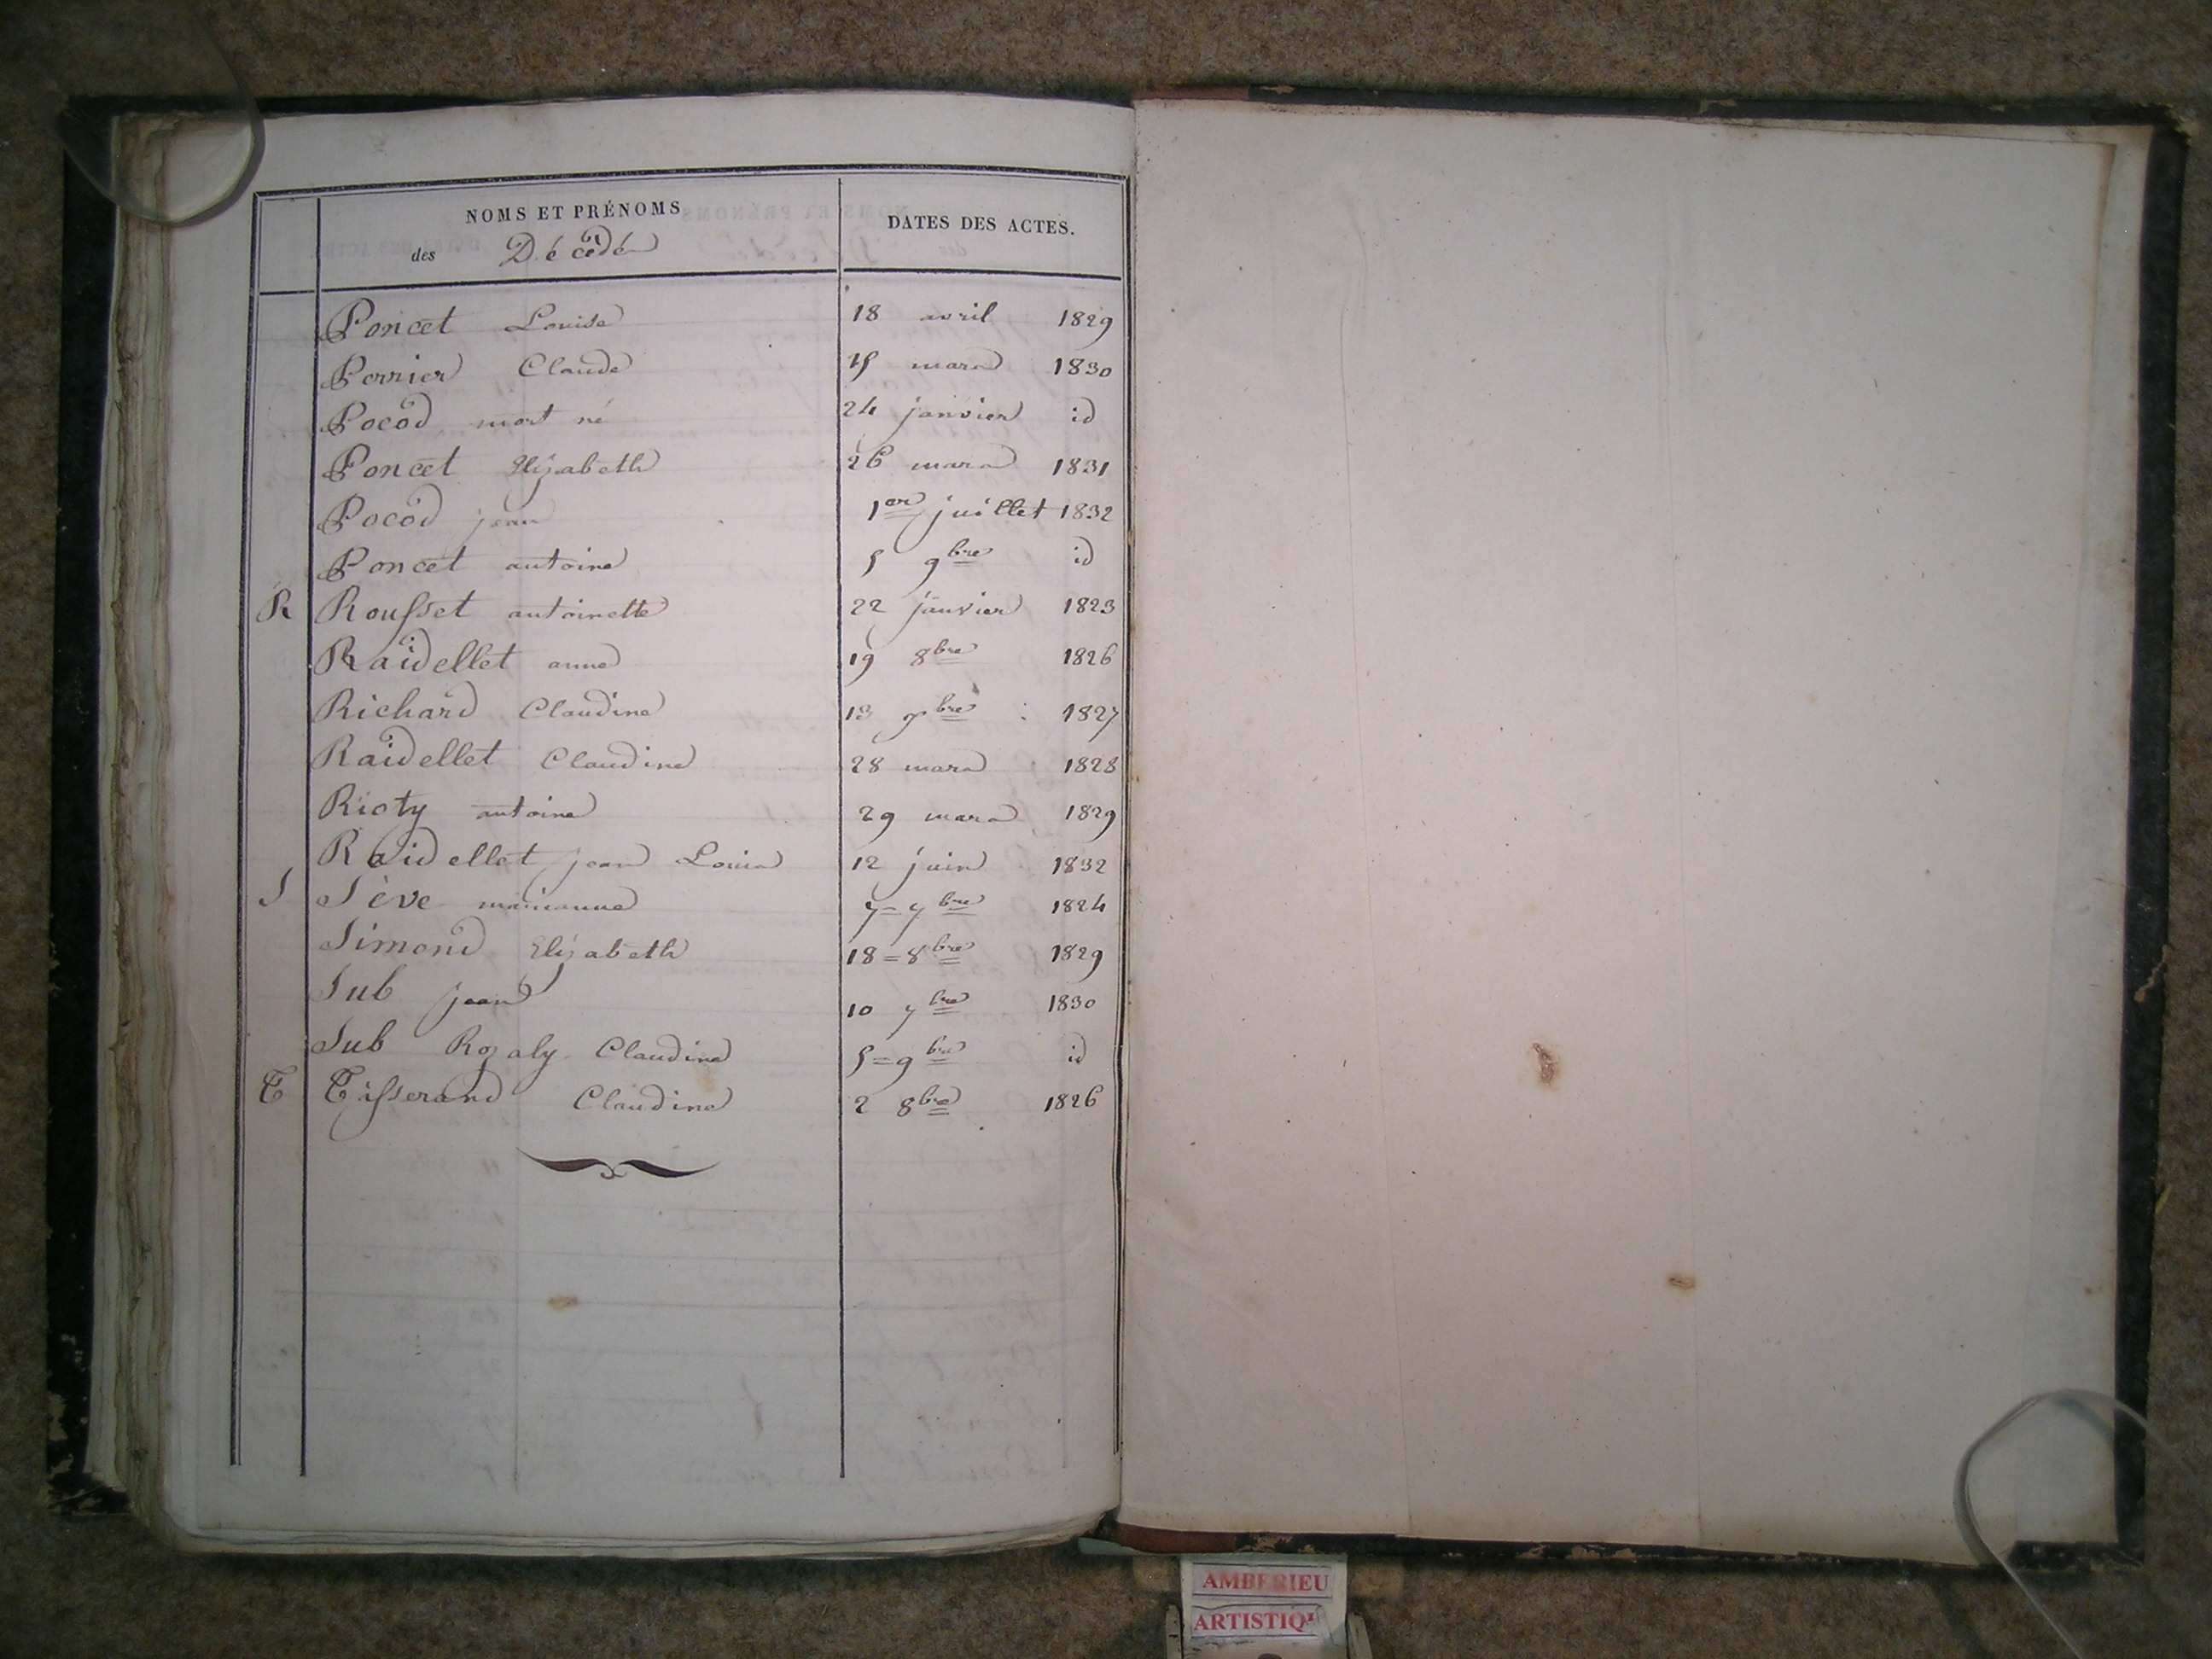 NOMS ET PRÉNOMS
des Décédés
DATES DES ACTES.
Poncet Louise 18 avril 1829
Perrier Claude 15 mars 1830
Pocod mort né 24 janvier id
Poncet Elizabeth 26 mars 1831
Pocod jean 1er juillet 1832
Poncet antoine 5 9bre id
R Rousset antoinette 22 janvier 1823
Raidellet anne 19 8bre 1826
Richard Claudine 13 9bre 1827
Raidellet Claudine 28 mars 1828
Rioty antoine 29 mars 1829
Raidellet jean Louis 12 juin 1832
S Sève marianne 7=7bre 1824
Simond Elizabeth 18=8bre 1829
Sub jean 10 7bre 1830
Sub Rozaly Claudine 5=9bre id
T Tisserand Claudine 2 8bre 1826
AMBERIEU